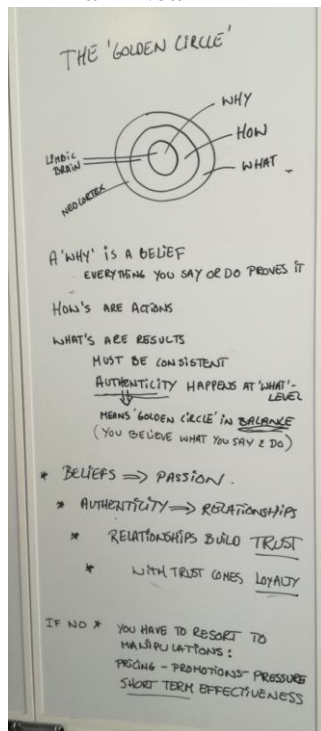 THE 'GOLDEN CIRCLE'
WHY
HOW
WHAT
LIMBIC
BRAIN
NEOCORTEX
A 'WHY' IS A BELIEF
EVERYTHING YOU SAY OR DO PROVES IT
HOW'S ARE ACTIONS
WHAT'S ARE RESULTS
MUST BE CONSISTENT
AUTHENTICITY HAPPENS AT 'WHAT'-
LEVEL
MEANS 'GOLDEN CIRCLE' IN BALANCE
(YOU BELIEVE WHAT YOU SAY & DO)
* BELIEFS => PASSION.
* AUTHENTICITY => RELATIONSHIPS
* RELATIONSHIPS BUILD TRUST
* WITH TRUST COMES LOYALTY
IF NO * YOU HAVE TO RESORT TO
MANIPULATIONS:
PRICING - PROMOTIONS - PRESSURE
SHORT TERM EFFECTIVENESS